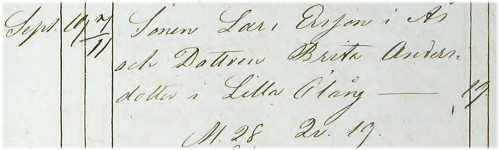 Sept. 19 7/11 Sonen Lars Ersson i Ås
och Dottren Brita Anders-
dotter i Lilla Ålång — 19
M. 28 Qv. 19.